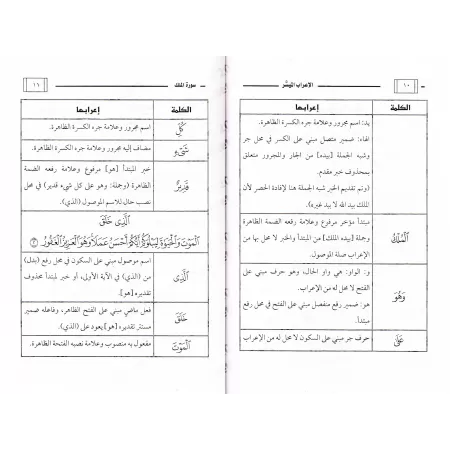 ١٠ الإعراب الميسّر
الكلمة إعرابها
يد: اسم مجرور وعلامة جره الكسرة الظاهرة.
الهاء: ضمير متصل مبني على الكسر في محل جر
وشبه الجملة [بيده] من الجار والمجرور متعلق
بمحذوف خبر مقدم.
(وتم تقديم الخبر شبه الجملة هنا لإفادة الحصر لأن
الملك بيد الله لا بيد غيره).
ٱلْمُلْكُ مبتدأ مؤخر مرفوع وعلامة رفعه الضمة الظاهرة
وجملة [بيده الملك] من المبتدأ والخبر لا محل لها من
الإعراب صلة الموصول.
وَهُوَ و: الواو: هي واو الحال، وهو حرف مبني على
الفتح لا محل له من الإعراب.
هو: ضمير رفع منفصل مبني على الفتح في محل رفع
مبتدأ.
عَلَىٰ حرف جر مبني على السكون لا محل له من الإعراب
سورة الملك ١١
الكلمة إعرابها
كُلِّ اسم مجرور وعلامة جره الكسرة الظاهرة.
شَىْءٍ مضاف إليه مجرور وعلامة جره الكسرة الظاهرة.
قَدِيرٌ خبر المبتدأ [هو] مرفوع وعلامة رفعه الضمة
الظاهرة (وجملة: وهو على كل شيء قدير) في محل
نصب حال للاسم الموصول (الذي).
ٱلَّذِى خَلَقَ
ٱلْمَوْتَ وَٱلْحَيَوٰةَ لِيَبْلُوَكُمْ أَيُّكُمْ أَحْسَنُ عَمَلًا وَهُوَ ٱلْعَزِيزُ ٱلْغَفُورُ ٢
ٱلَّذِى اسم موصول مبني على السكون في محل رفع (بدل)
من (الذي) في الآية الأولى، أو خبر لمبتدأ محذوف
تقديره [هو].
خَلَقَ فعل ماضي مبني على الفتح الظاهر، وفاعله ضمير
مستتر تقديره [هو] يعود على (الذي).
ٱلْمَوْتَ مفعول به منصوب وعلامة نصبه الفتحة الظاهرة.